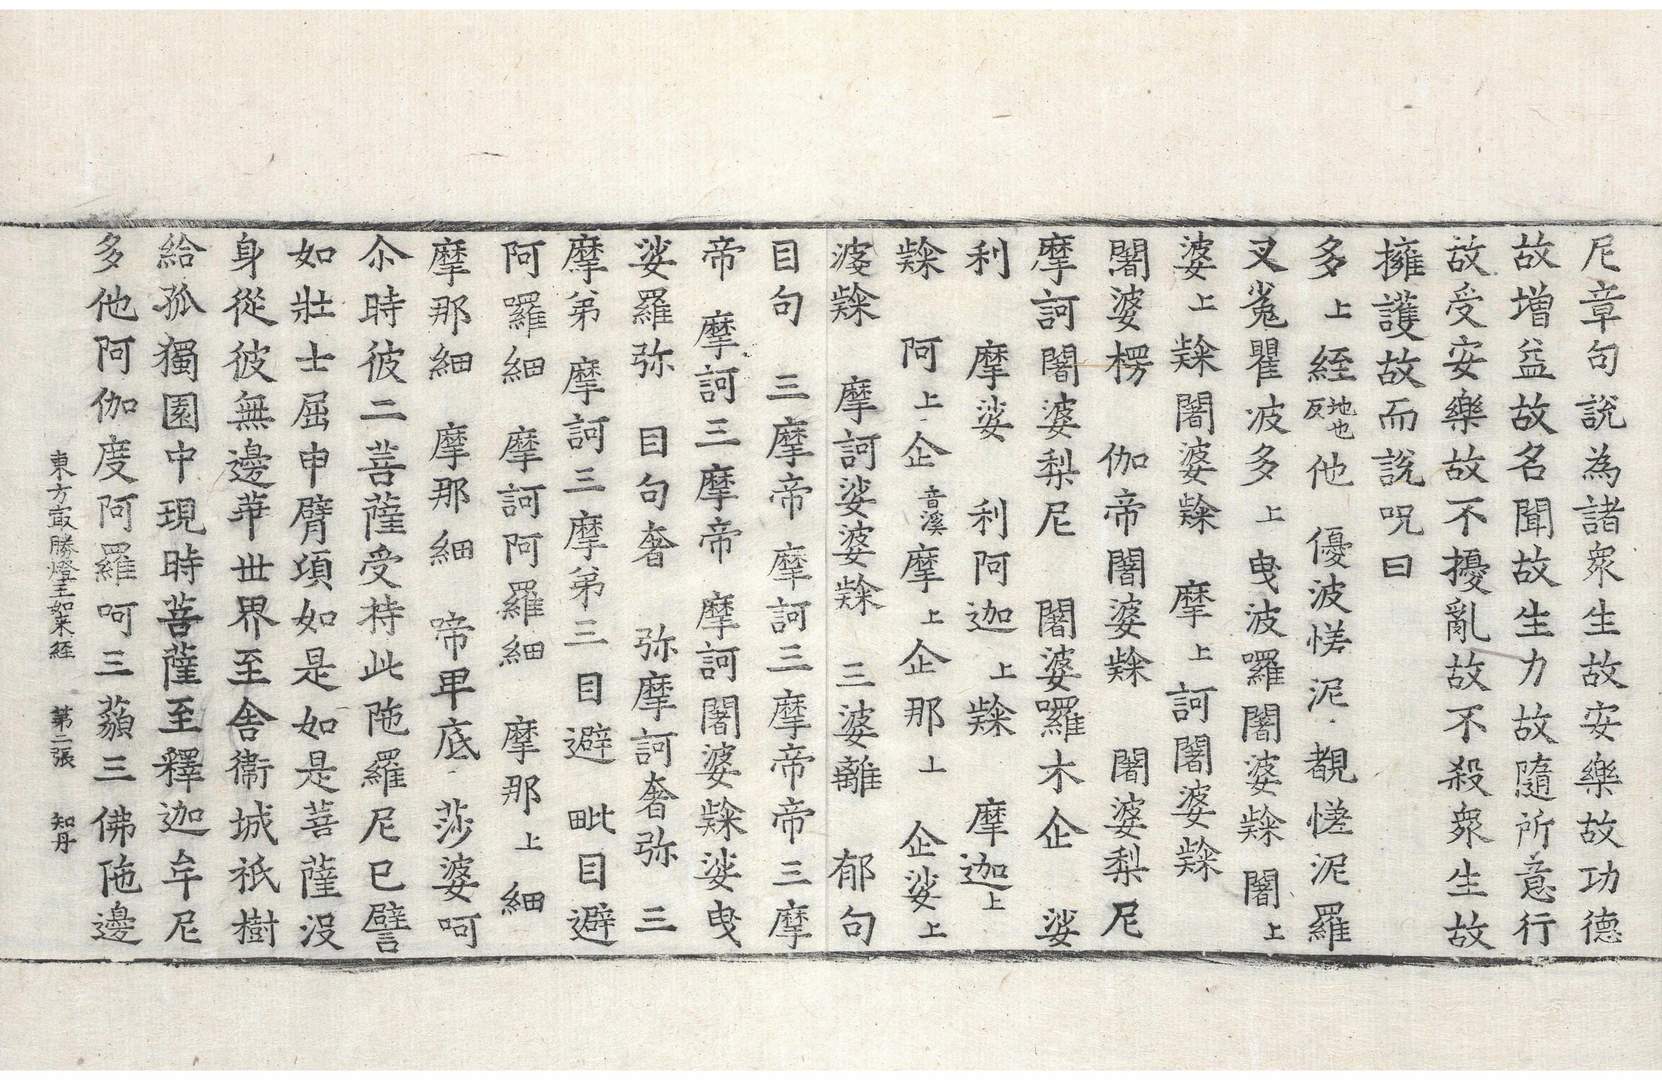 尼章句說為諸衆生故安樂故功德
故增益故名聞故生力故隨所意行
故受安樂故不擾亂故不殺衆生故
擁護故而說呪曰
多上絰地也反他 優波㥭泥 覩㥭泥羅
叉菟瞿波多上曳波囉闍婆𣣋闍上
婆上𣣋闍婆𣣋 摩上訶闍婆𣣋
闍婆楞 伽帝闍婆𣣋 闍婆梨尼
摩訶闍婆梨尼 闍婆囉木企 娑
利 摩娑 利阿迦上𣣋 摩迦上
𣣋 阿上企音溪摩上企那上 企娑上
婆𣣋 摩訶娑婆𣣋 三婆離 郁句
目句 三摩帝 摩訶三摩帝帝三摩
帝 摩訶三摩帝 摩訶闍婆𣣋娑曳
娑羅弥 目句奢 弥摩訶奢弥 三
摩第 摩訶三摩第三目避 毗目避
阿囉細 摩訶阿羅細 摩那上細
摩那細 摩那細 啼卑底 莎婆呵
尒時彼二菩薩受持此陁羅尼已譬
如壯士屈申臂項如是如是菩薩沒
身從彼無邊華世界至舍衞城祇樹
給孤獨園中現時菩薩至釋迦牟尼
多他阿伽度阿羅呵三藐三佛陁邊
東方冣勝燈王如来経 第二張 知丹